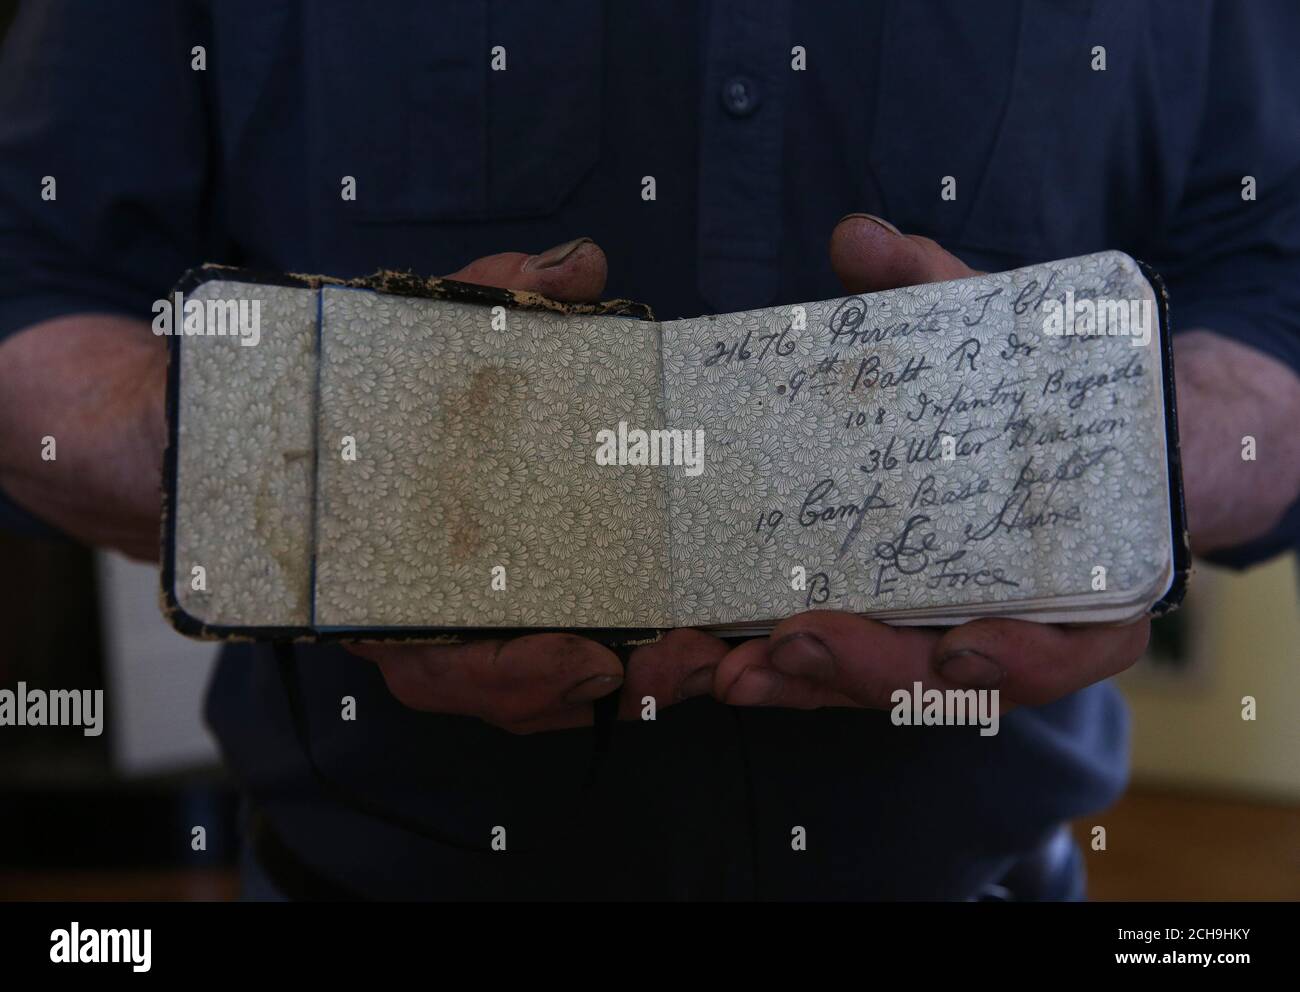 21676 Private J
9th Batt R Ir Fus
108 Infantry Brigade
36 Ulster Division
19 Camp Base Depot
Le Havre
B E Force
alamy
alamy
Image ID: 2CH9HKY
www.alamy.com